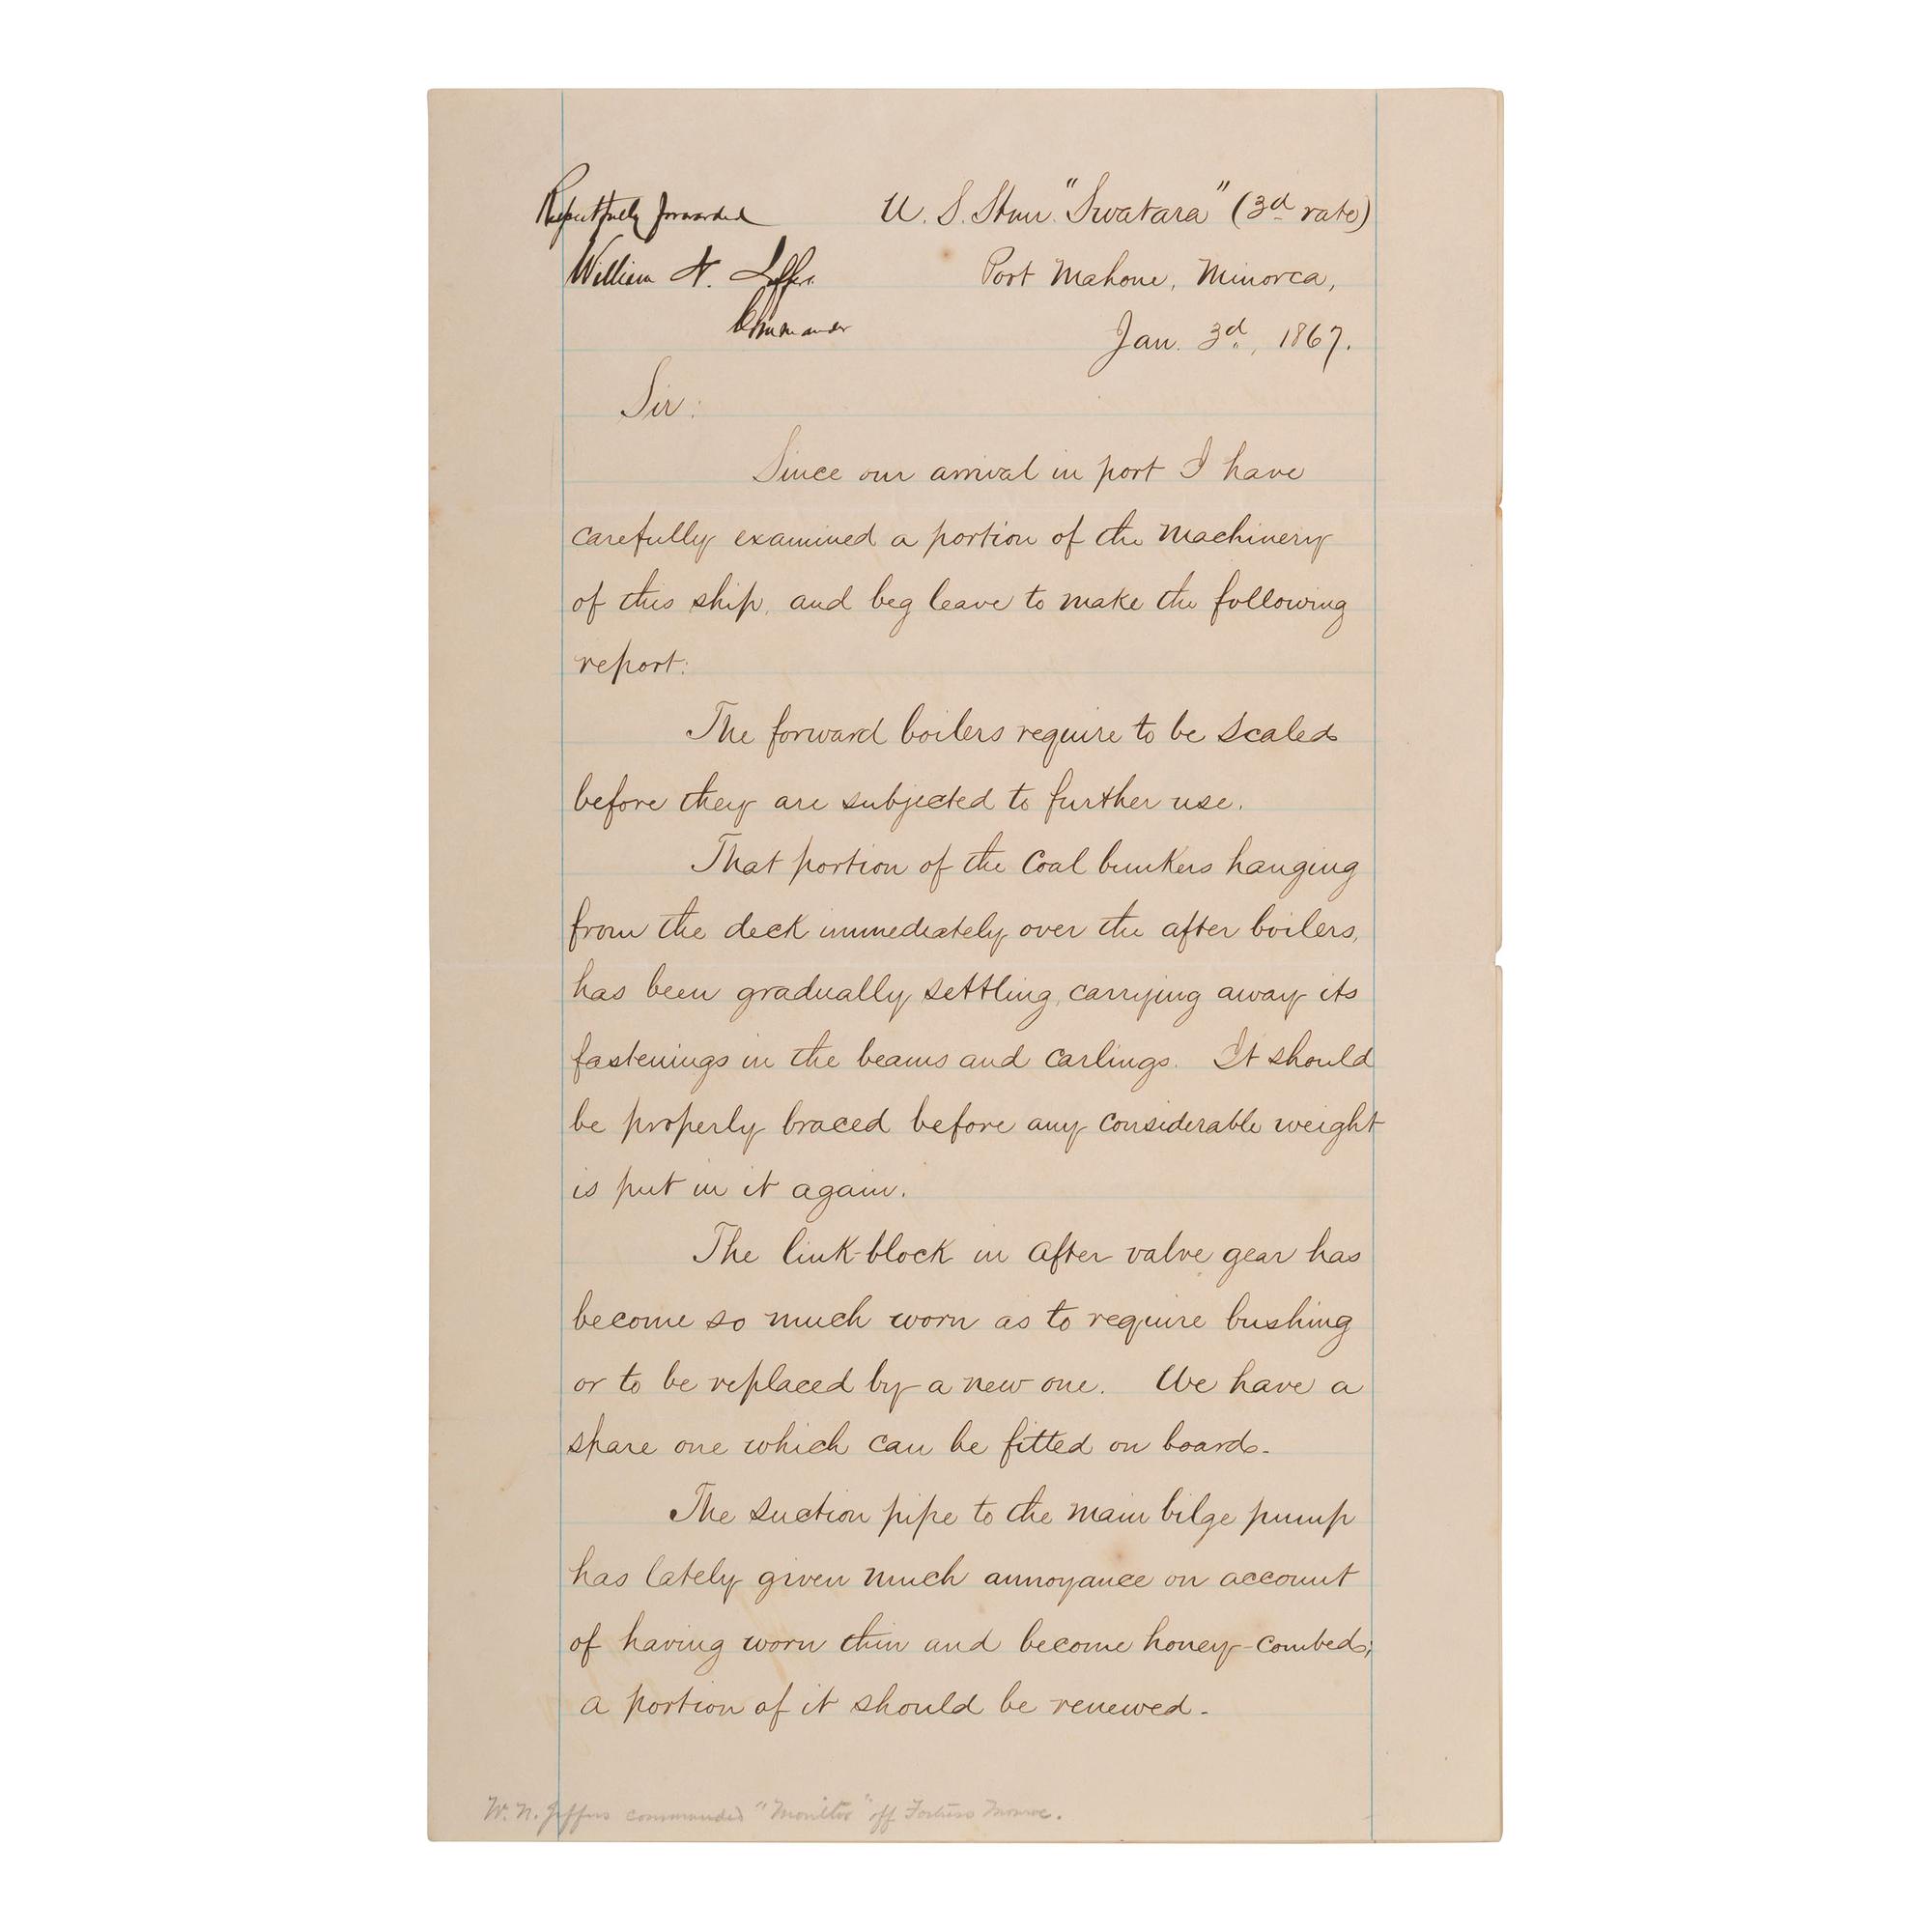 Respectfully forwarded
William N. Jeffers
Commander
U. S. Stmr. "Swatara" (3d rate)
Port Mahone, Minorca,
Jan. 3d, 1867.
Sir:
Since our arrival in port I have
carefully examined a portion of the machinery
of this ship, and beg leave to make the following
report:
The forward boilers require to be scaled
before they are subjected to further use.
That portion of the coal bunkers hanging
from the deck immediately over the after boilers,
has been gradually settling, carrying away its
fastenings in the beams and carlings. It should
be properly braced before any considerable weight
is put in it again.
The link-block in after valve gear has
become so much worn as to require bushing
or to be replaced by a new one. We have a
spare one which can be fitted on board.
The suction pipe to the main bilge pump
has lately given much annoyance on account
of having worn thin and become honey-combed;
a portion of it should be renewed.
W. N. Jeffers commanded "Monitor" off Fortress Monroe.